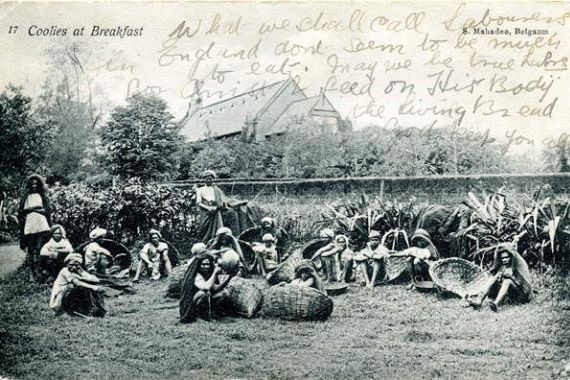 17 Coolies at Breakfast
S. Mahadeo, Belgaum
What we shall call Labourers
in England dont seem to be much
to eat. May we be true
for Christ & feed on His Body
the living Bread
God keep you all